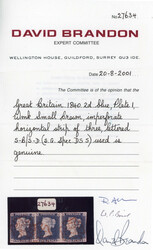 No 27634
DAVID BRANDON
EXPERT COMMITTEE
WELLINGTON HOUSE, GUILDFORD, SURREY GU3 1OG
Date 20-8-2001
The Committee is of the opinion that the
Great Britain 1840 2d blue, Plate 1,
wmk Small Crown, imperforate
horizontal strip of three, lettered
S-B/S-D (S.G. Spec DS5) used is
genuine
27634
David Brandon